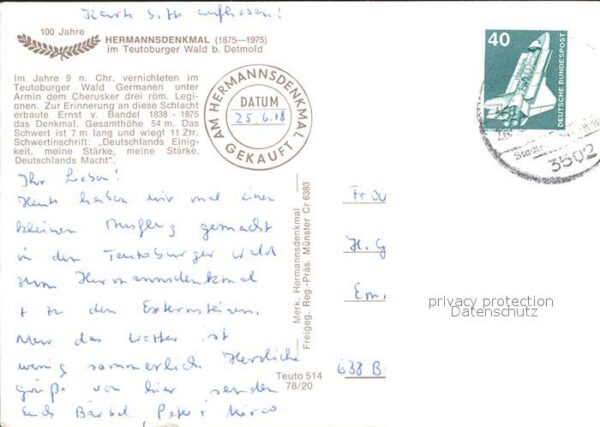 Karte bitte aufheben!
100 Jahre
HERMANNSDENKMAL (1875–1975)
im Teutoburger Wald b. Detmold
Im Jahre 9 n. Chr. vernichteten im
Teutoburger Wald Germanen unter
Armin dem Cherusker drei röm. Legi-
onen. Zur Erinnerung an diese Schlacht
erbaute Ernst v. Bandel 1838 - 1875
das Denkmal. Gesamthöhe 54 m. Das
Schwert ist 7 m lang und wiegt 11 Ztr.
Schwertinschrift: „Deutschlands Einig-
keit, meine Stärke, meine Stärke,
Deutschlands Macht".
AM HERMANNSDENKMAL
DATUM
25.6.78
GEKAUFT
40
DEUTSCHE BUNDESPOST
3502
Ihr Lieben!
Heute haben wir mal einen
kleinen Ausflug gemacht
in den Teutoburger Wald
zum Hermannsdenkmal
+ zu den Externsteinen.
Nur das Wetter ist
wenig sommerlich. Herzliche
Grüße von hier senden
Euch Bärbel, Peter + Mirco
Merk. Hermannsdenkmal
Freigeg. Reg.-Präs. Münster Cr 6383
Teuto 514
78/20
H. G
Em.
633 B
privacy protection
Datenschutz